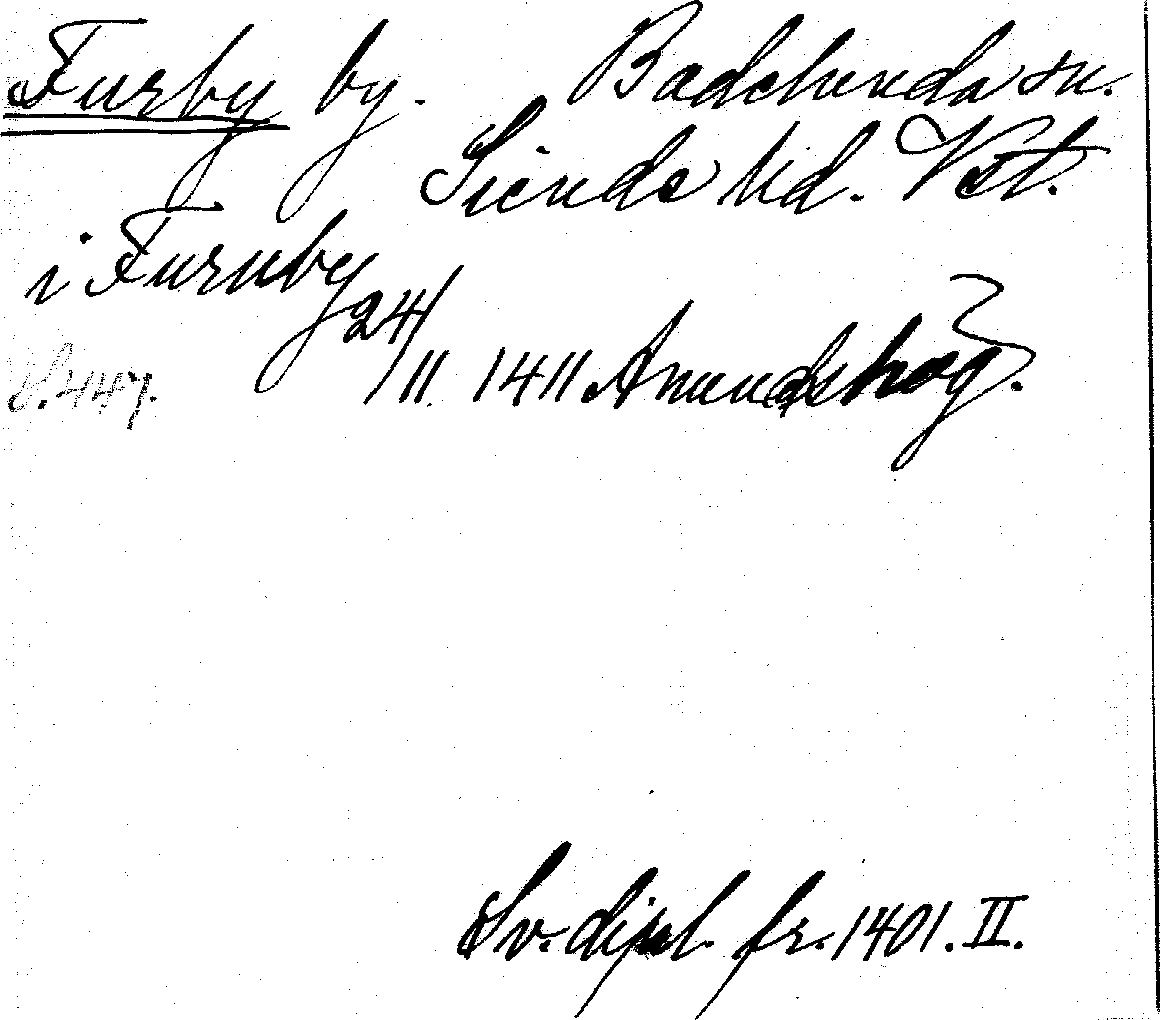 Furby by. Badelunda sn.
Siende hd. Vstl.
i Furuby 24/11 1411 Amundshög.
S. 447.
Sv. dipl. fr. 1401. II.